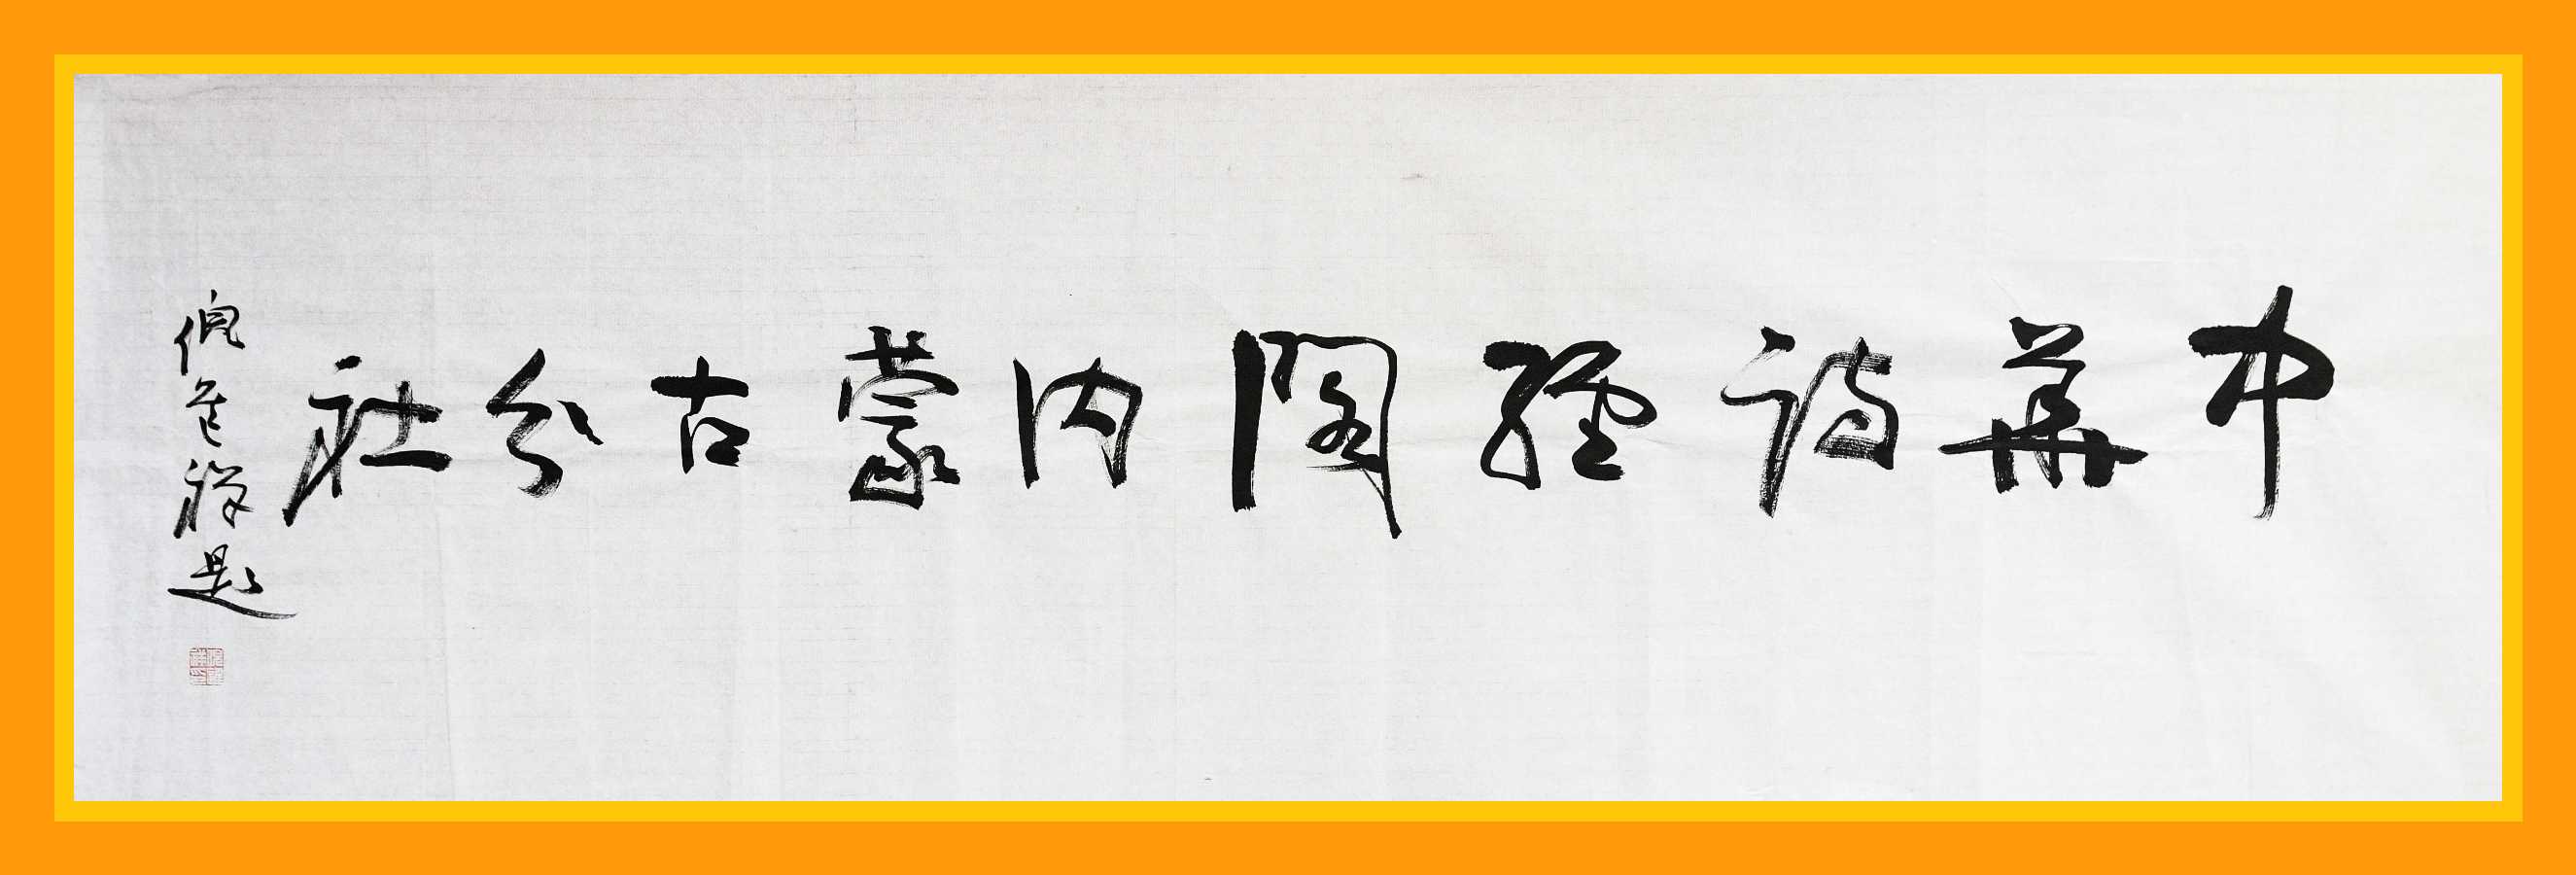 中華詩經閣內蒙古分社
倪色祥題